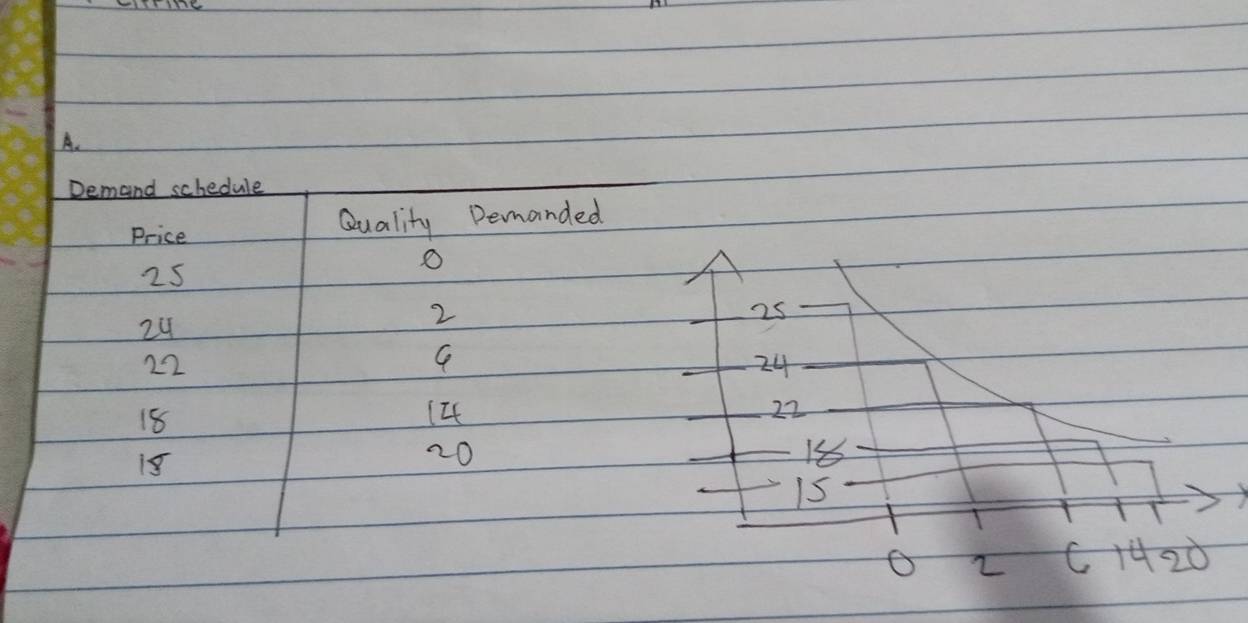 Citrine
A.
Demand schedule
Price Quality Demanded
25 0
24 2
22 6
18 14
15 20
25
24
22
18
15
0 2 6 14 20